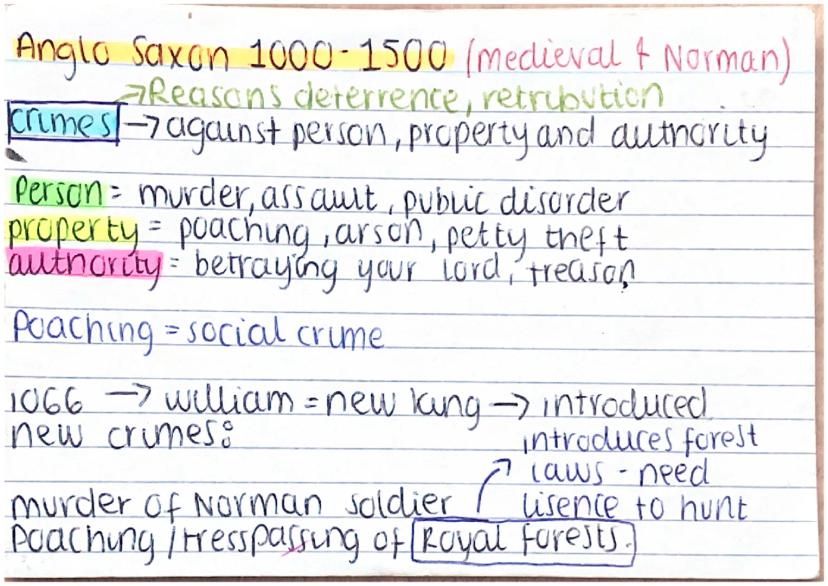 Anglo Saxon 1000-1500 (medieval & Norman)
→Reasons deterrence, retribution
crimes → against person, property and authority
Person = murder, assault, public disorder
property = poaching, arson, petty theft
authority = betraying your lord, treason
Poaching = social crime
1066 → william = new king → introduced
new crimes:
introduces forest
laws - need
lisence to hunt
murder of Norman soldier
Poaching / tresspassing of Royal Forests.